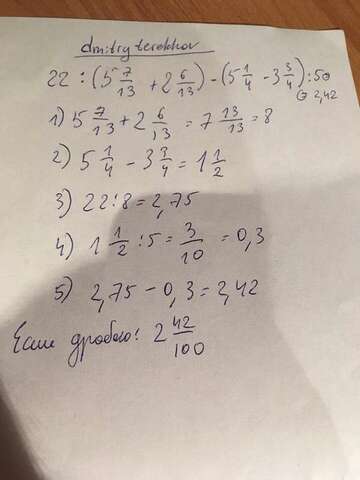 dmitryterekhov
22 : (5 7/13 + 2 6/13) - (5 1/4 - 3 3/4) : 5
= 2,42
1) 5 7/13 + 2 6/13 = 7 13/13 = 8
2) 5 1/4 - 3 3/4 = 1 1/2
3) 22 : 8 = 2,75
4) 1 1/2 : 5 = 3/10 = 0,3
5) 2,75 - 0,3 = 2,42
Если дробью: 2 42/100